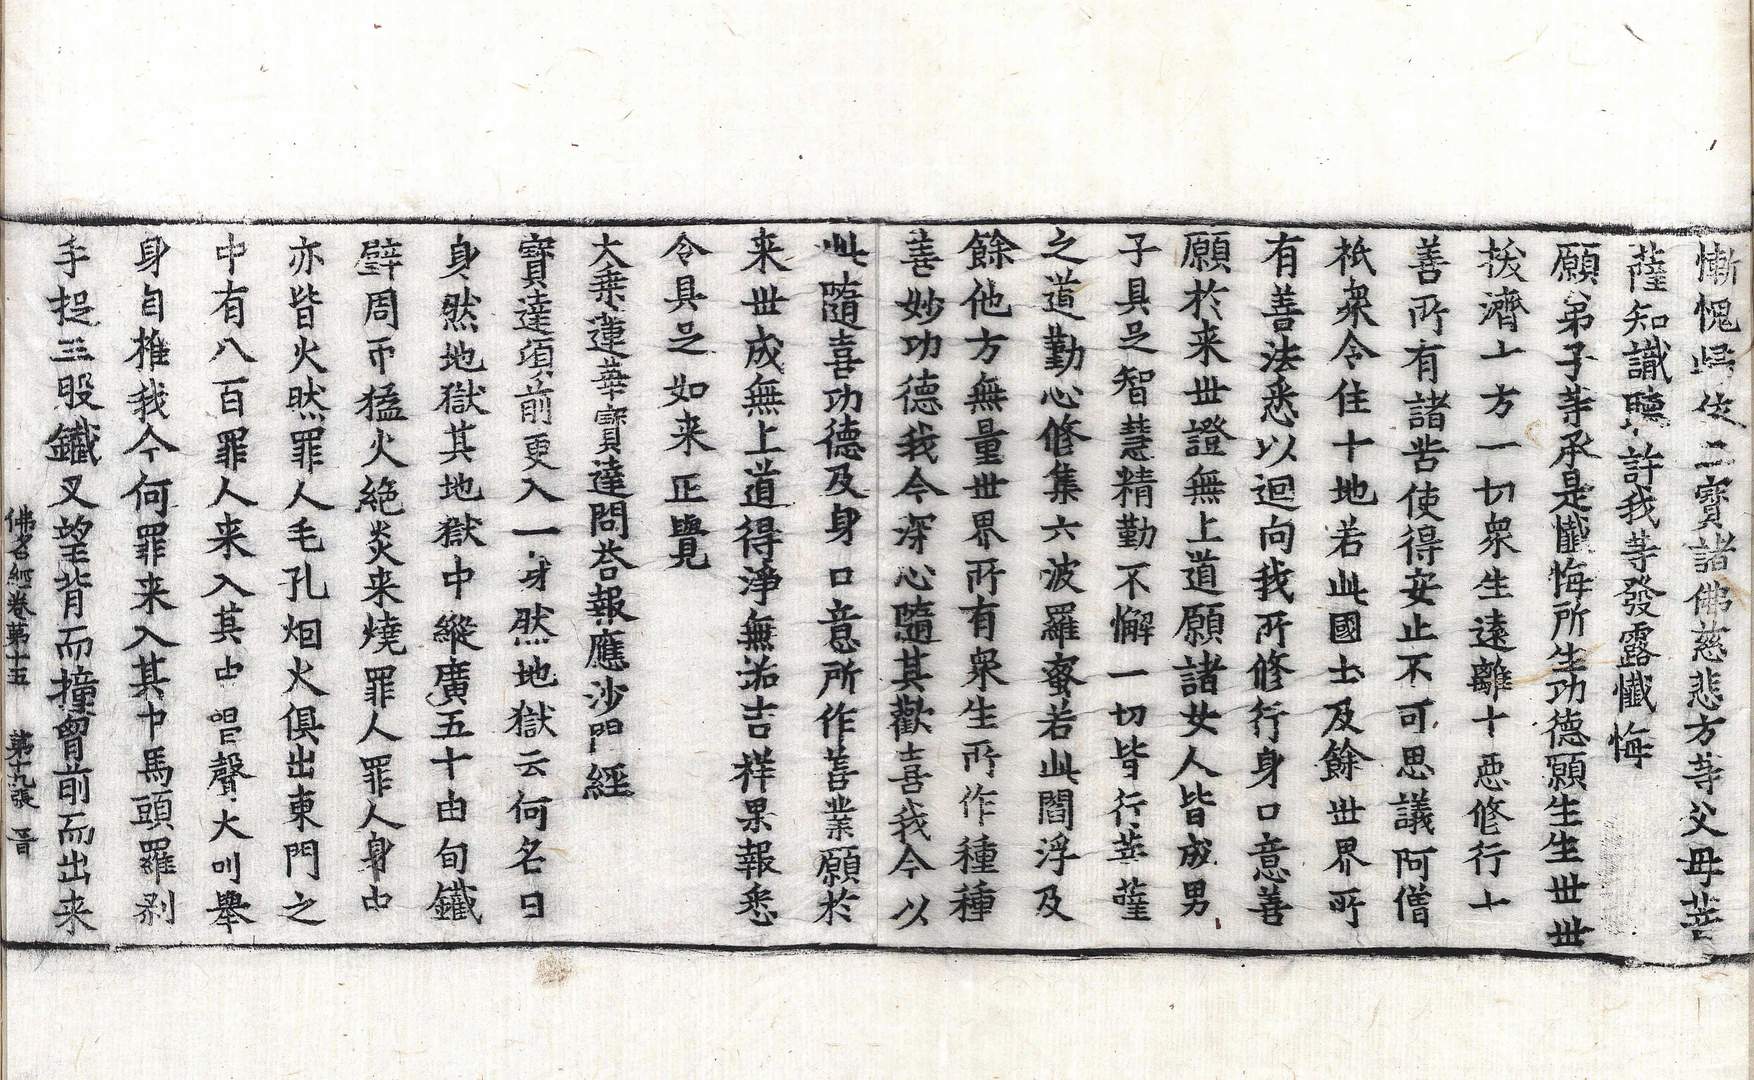 慚愧歸依三寶諸佛慈悲方等父母菩
薩知識聽許我等發露懺悔
願弟子等承是懺悔所生功德願生生世世
拔濟十方一切衆生遠離十惡修行十
善所有諸苦使得安止不可思議阿僧
祇衆令住十地若此國土及餘世界所
有善法悉以迴向我所修行身口意善
願於来世證無上道願諸女人皆成男
子具足智慧精勤不懈一切皆行菩薩
之道勤心修集六波羅蜜若此閻浮及
餘他方無量世界所有衆生所作種種
善妙功德我今深心隨其歡喜我今以
此隨喜功德及身口意所作善業願於
来世成無上道得淨無垢吉祥果報悉
令具足如来正覺
大乘蓮華寶達問荅報應沙門經
寶達須前更入一身然地獄云何名曰
身然地獄其地獄中縱廣五十由旬鐵
壁周帀猛火絶炎来燒罪人罪人身中
亦皆火然罪人毛孔烟火俱出東門之
中有八百罪人来入其中唱聲大叫舉
身自推我今何罪来入其中馬頭羅刹
手捉三股鐵叉望背而撞胷前而出来
佛名經卷第十五 第十九張 晋